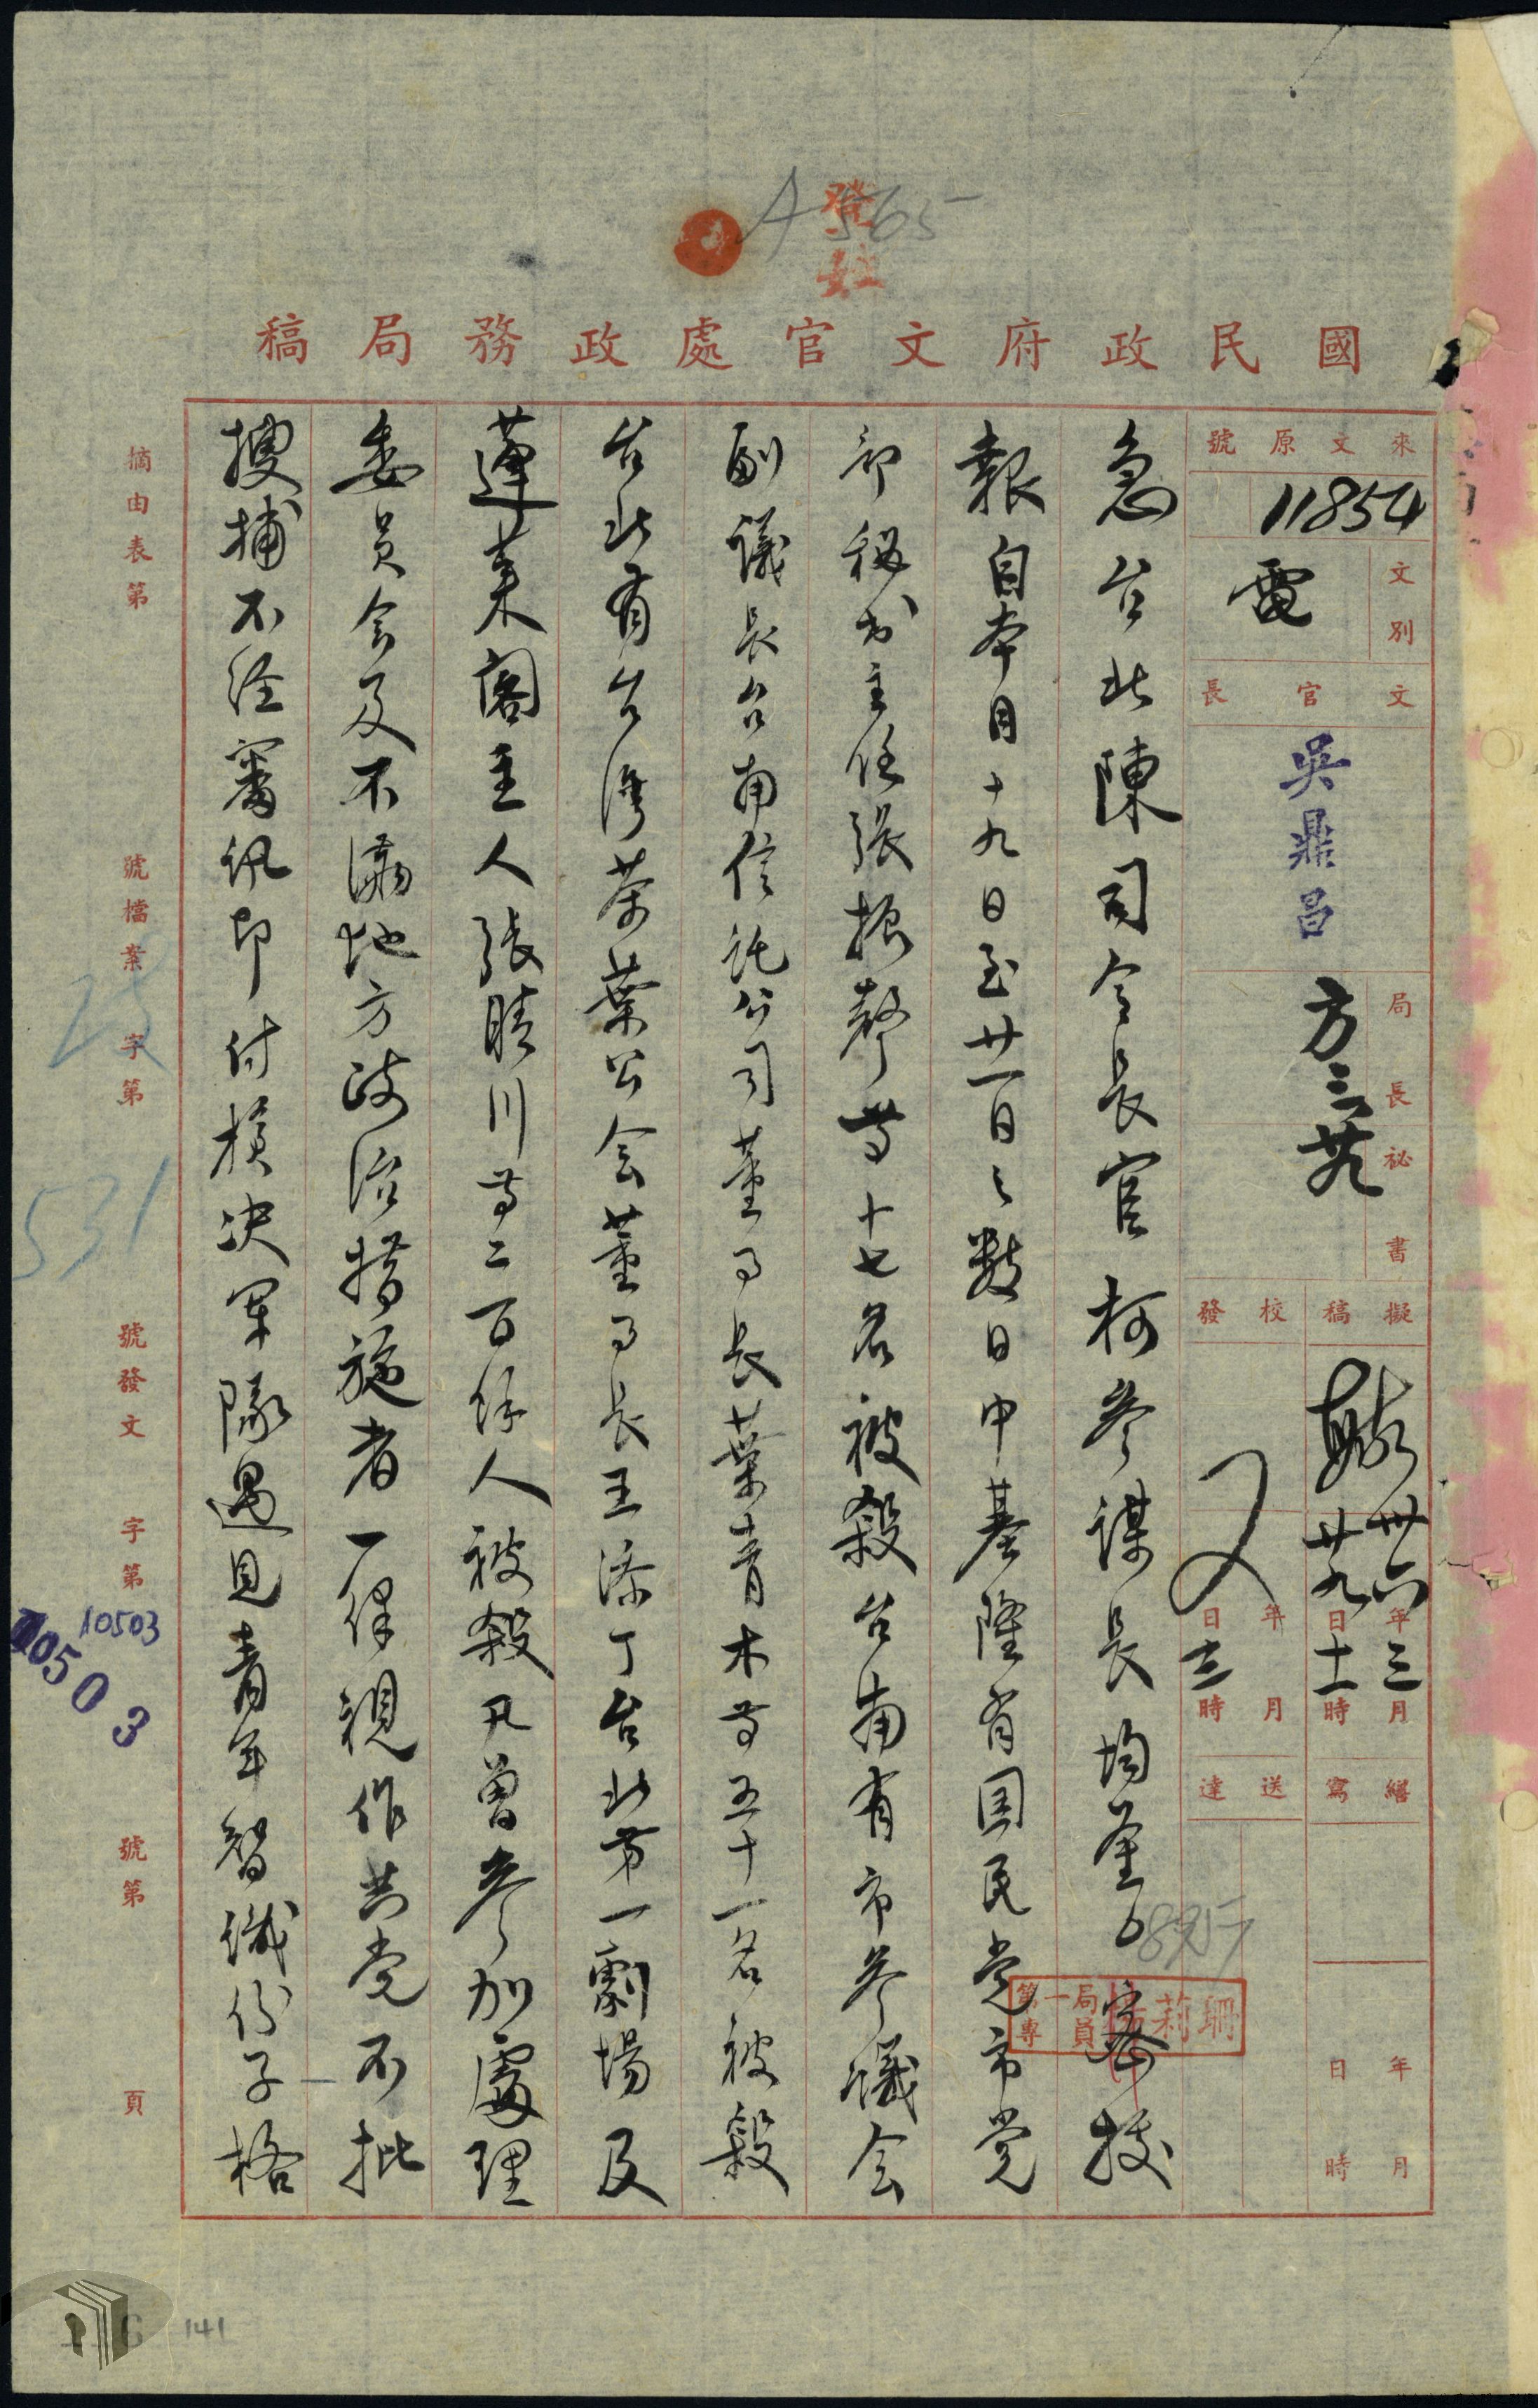 A 565
登註
國民政府文官處政務局稿
來文原號
11854
文別
電
文官長
吳鼎昌
局長
祕書
方 三 廿九
擬稿
卅六年三月廿九日十一時
校發
年月日時
繕寫
年月日時
送達
急台北陳司令長官柯參謀長均鑒密據
報自本月十九日至廿一日之數日中基隆有国民党市党
部秘书主任張振聲等十七名被殺台南有市參議会
副議長台南信託公司董事長葉青木等五十一名被殺
台北有台湾茶葉公会董事長王添丁台北第一劇場及
蓬莱閣主人張晴川等二百餘人被殺凡曾參加處理
委員会及不滿地方政治措施者一律視作共党不批
搜捕不经審訊即付槍決军隊遇見青年智識份子格
第一局專員
莉珊
摘由表第
號檔案
字第
531
號發文
字第
10503
10503
號第
頁
141